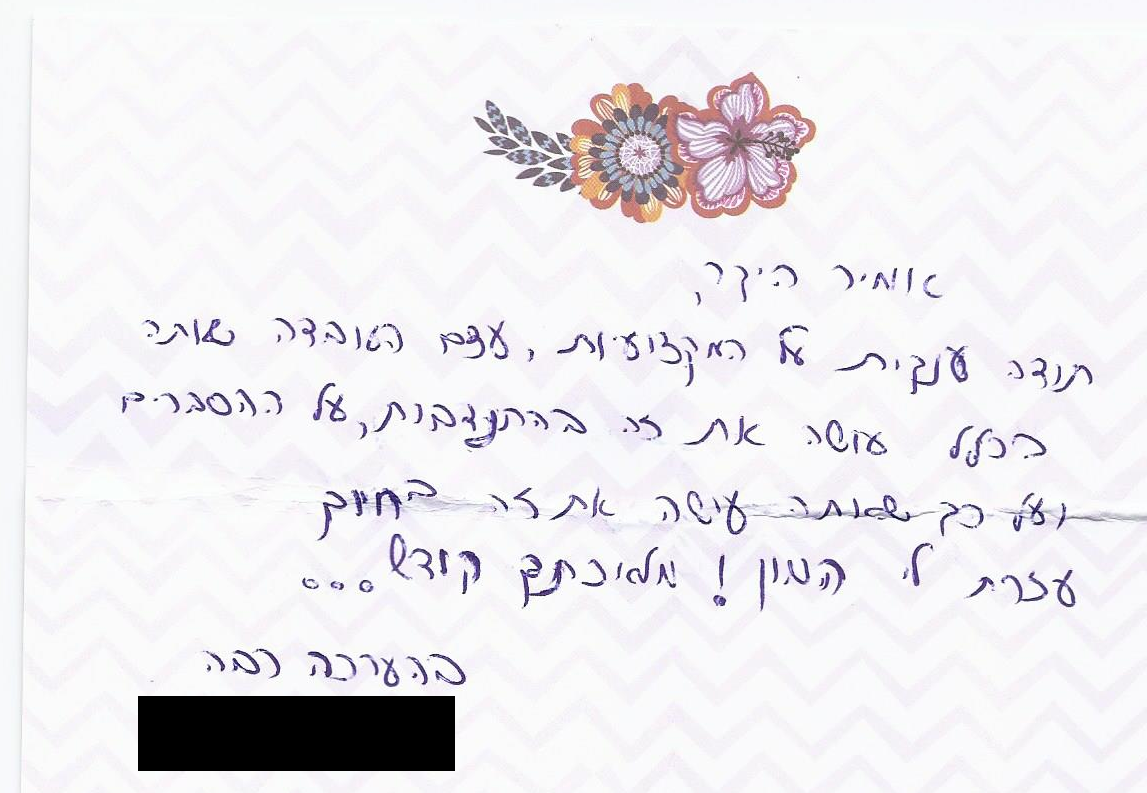 אומיר היקר,
תודה ענקית על המקצועיות, עצם העובדה שאתה
בכלל עושה את זה בהתנדבות, על ההסברים
ועל כך שאתה עושה את זה בחיוך
עזרת לי המון! מלאכתך קודש...
בהערכה רבה